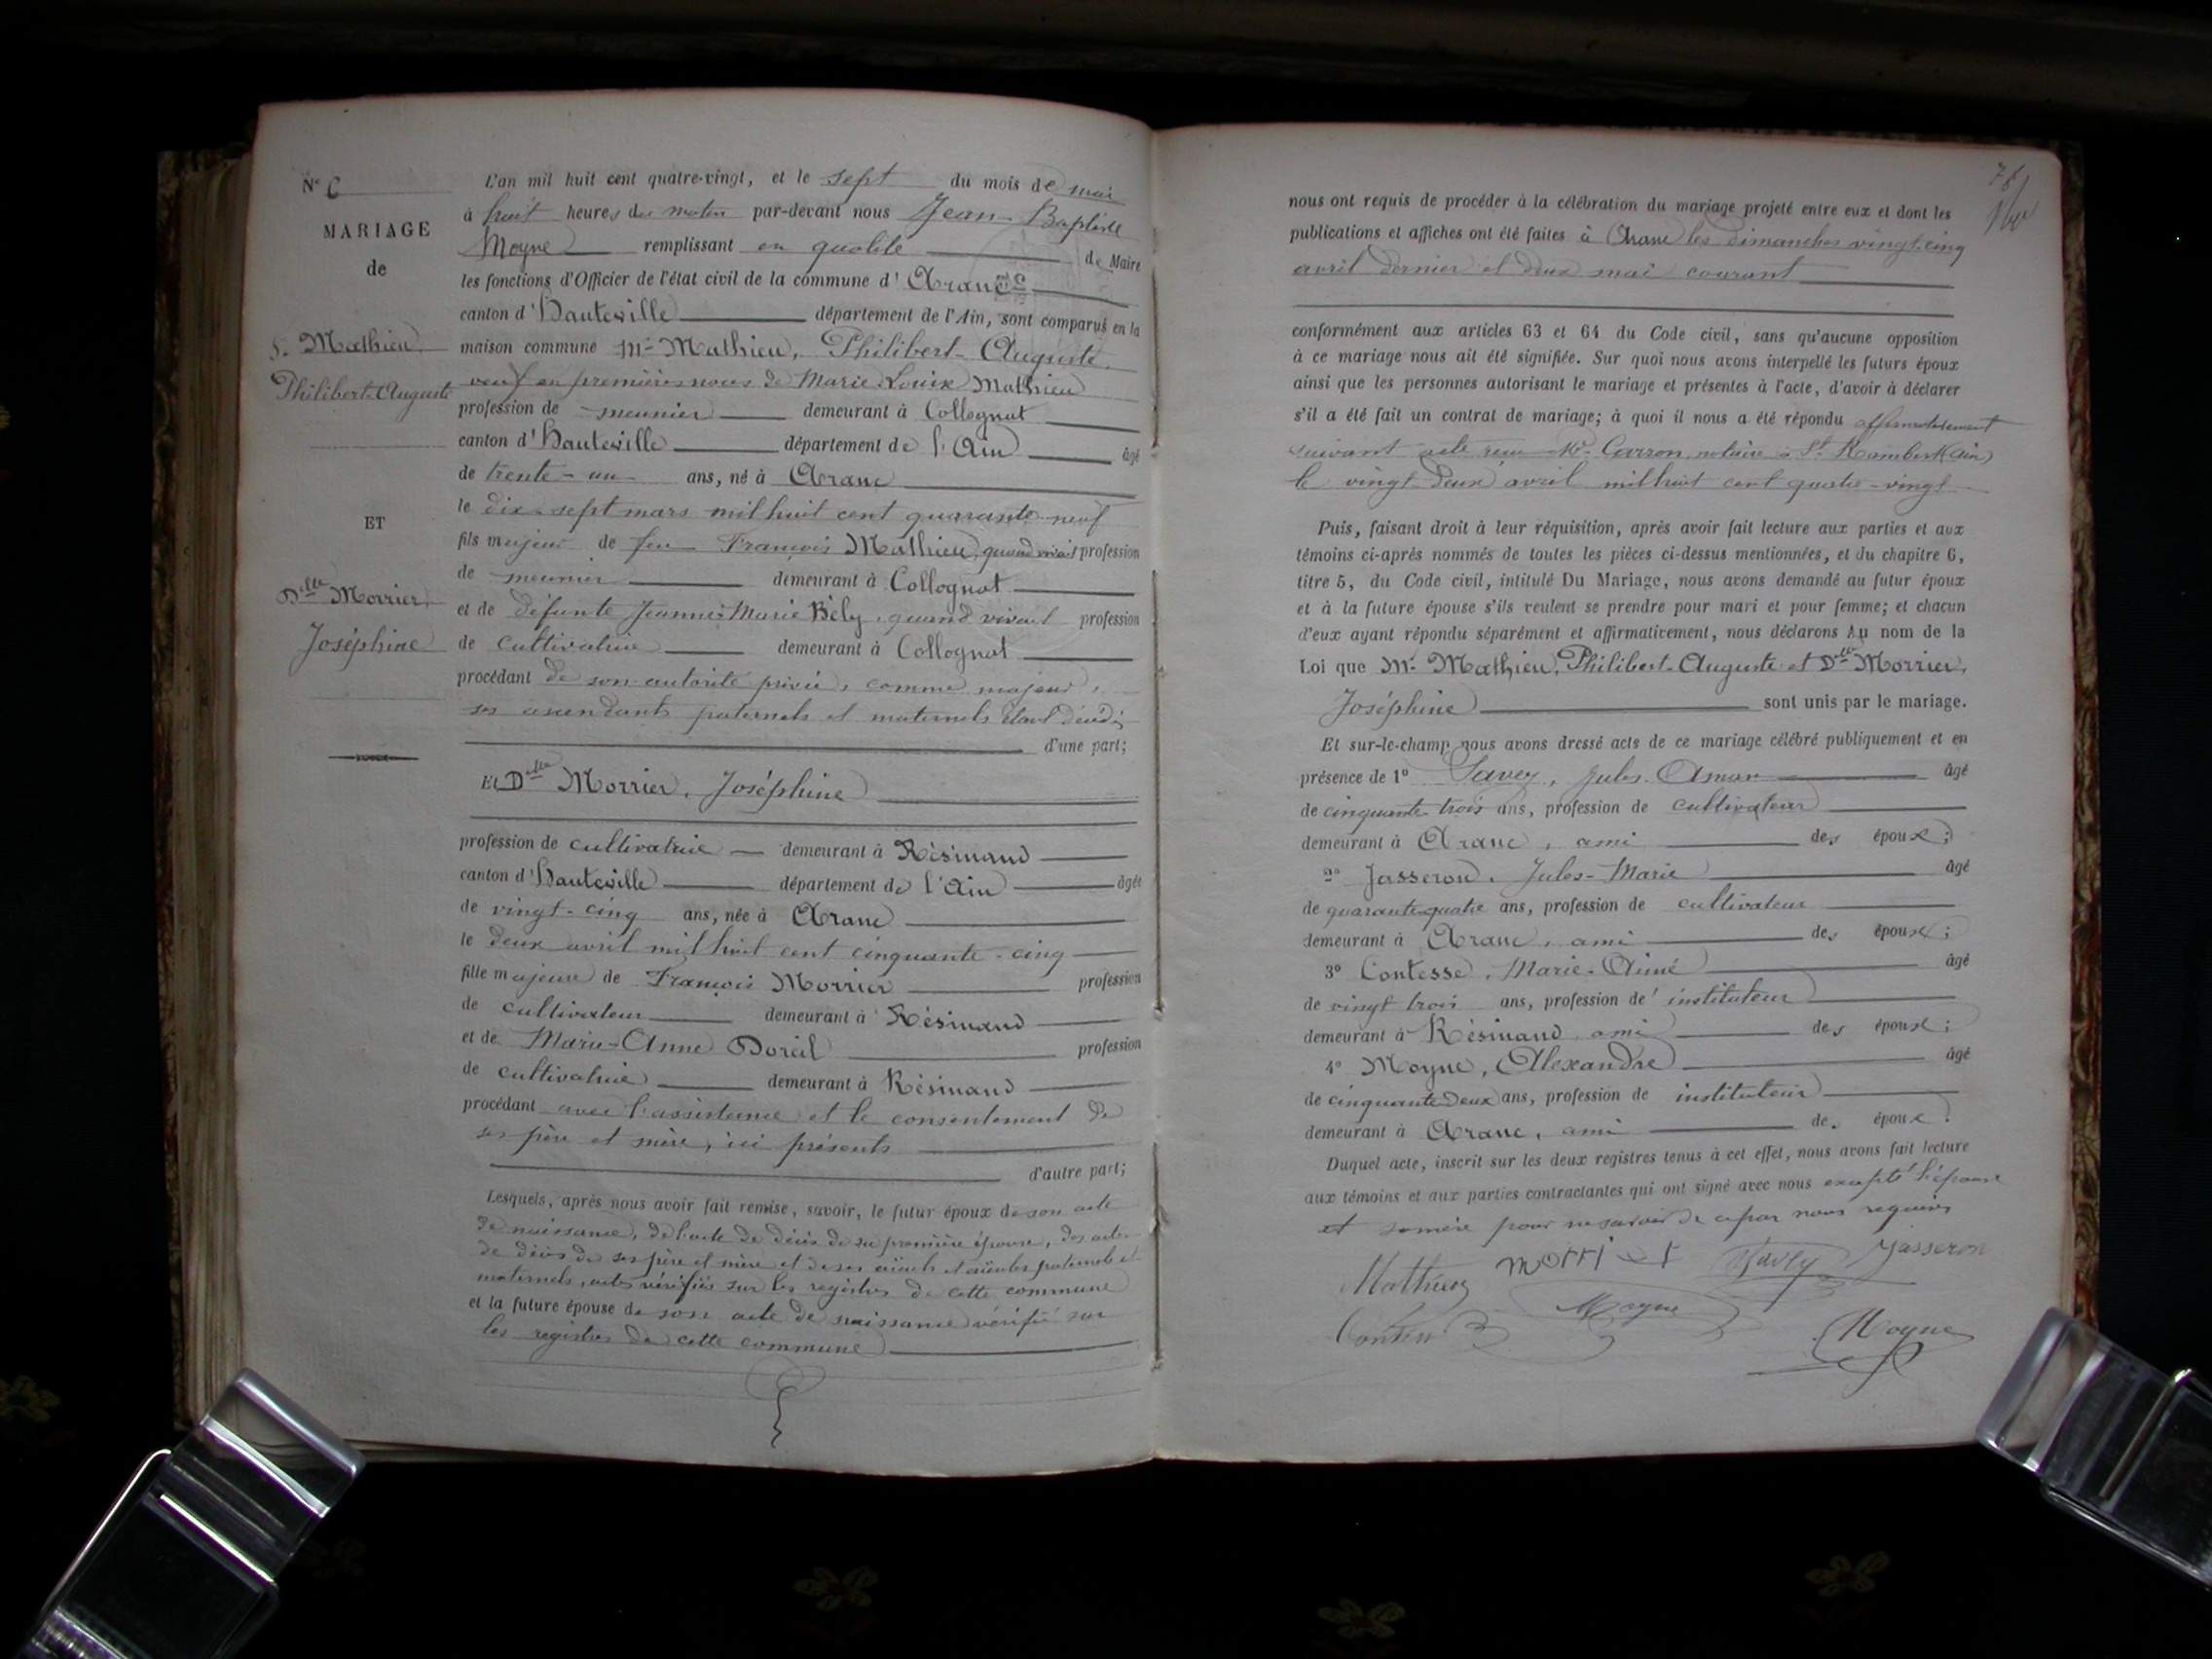 N° 6
MARIAGE
de
S. Mathieu
Philibert-Auguste
ET
Dlle Morrier,
Joséphine
L'an mil huit cent quatre-vingt, et le sept du mois de mai
à huit heures du matin par-devant nous Jean-Baptiste
Moyne remplissant en qualité de Maire
les fonctions d'Officier de l'état civil de la commune d'Aranc
canton d'Hauteville département de l'Ain, sont comparus en la
maison commune Mr Mathieu, Philibert-Auguste,
veuf en premières noces de Marie Louise Mathieu
profession de meunier demeurant à Collognat
canton d'Hauteville département de l'Ain âgé
de trente-un ans, né à Aranc
le dix-sept mars mil huit cent quarante-neuf
fils majeur de feu François Mathieu, quand vivait profession
de meunier demeurant à Collognat
et de défunte Jeanne-Marie Bély, quand vivait profession
de cultivatrice demeurant à Collognat
procédant de son autorité privée, comme majeur,
ses ascendants paternels et maternels étant décédés
d'une part;
Et Dlle Morrier, Joséphine
profession de cultivatrice demeurant à Résinand
canton d'Hauteville département de l'Ain âgée
de vingt-cinq ans, née à Aranc
le deux avril mil huit cent cinquante-cinq
fille majeure de François Morrier profession
de cultivateur demeurant à Résinand
et de Marie-Anne Doreil profession
de cultivatrice demeurant à Résinand
procédant avec l'assistance et le consentement de
ses père et mère, ici présents
d'autre part;
Lesquels, après nous avoir fait remise, savoir, le futur époux de son acte
de naissance, de l'acte de décès de sa première épouse, des actes
de décès de ses père et mère et de ses aïeuls et aïeules paternels et
maternels, actes vérifiés sur les registres de cette commune
et la future épouse de son acte de naissance vérifié sur
les registres de cette commune
nous ont requis de procéder à la célébration du mariage projeté entre eux et dont les
publications et affiches ont été faites à Aranc les dimanches vingt-cinq
avril dernier et deux mai courant
conformément aux articles 63 et 64 du Code civil, sans qu'aucune opposition
à ce mariage nous ait été signifiée. Sur quoi nous avons interpellé les futurs époux
ainsi que les personnes autorisant le mariage et présentes à l'acte, d'avoir à déclarer
s'il a été fait un contrat de mariage; à quoi il nous a été répondu affirmativement
suivant acte reçu Me Carron, notaire à St Rambert (Ain)
le vingt-deux avril mil huit cent quatre-vingt
Puis, faisant droit à leur réquisition, après avoir fait lecture aux parties et aux
témoins ci-après nommés de toutes les pièces ci-dessus mentionnées, et du chapitre 6,
titre 5, du Code civil, intitulé Du Mariage, nous avons demandé au futur époux
et à la future épouse s'ils veulent se prendre pour mari et pour femme; et chacun
d'eux ayant répondu séparément et affirmativement, nous déclarons Au nom de la
Loi que Mr Mathieu, Philibert-Auguste et Dlle Morrier,
Joséphine sont unis par le mariage.
Et sur-le-champ nous avons dressé acte de ce mariage célébré publiquement et en
présence de 1° Savey, Jules Amar âgé
de cinquante trois ans, profession de cultivateur
demeurant à Aranc, ami des époux;
2° Jasseron, Jules-Marie âgé
de quarante-quatre ans, profession de cultivateur
demeurant à Aranc, ami des époux;
3° Contesse, Marie-Aimé âgé
de vingt trois ans, profession d'instituteur
demeurant à Résinand ami des époux;
4° Moyne, Alexandre âgé
de cinquante-deux ans, profession de instituteur
demeurant à Aranc, ami de. époux.
Duquel acte, inscrit sur les deux registres tenus à cet effet, nous avons fait lecture
aux témoins et aux parties contractantes qui ont signé avec nous excepté l'épouse
et sa mère pour ne savoir de ce par nous requises
Mathieu morrier Savey Jasseron
Contesse Moyne Moyne